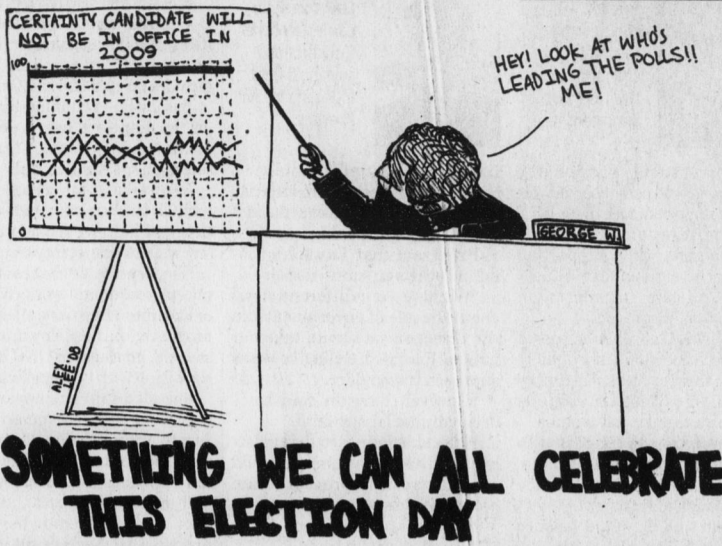 CERTAINTY CANDIDATE WILL
NOT BE IN OFFICE IN
2009
100
0
HEY! LOOK AT WHO'S
LEADING THE POLLS!!
ME!
GEORGE W.
ALEX
LEE '08
SOMETHING WE CAN ALL CELEBRATE
THIS ELECTION DAY